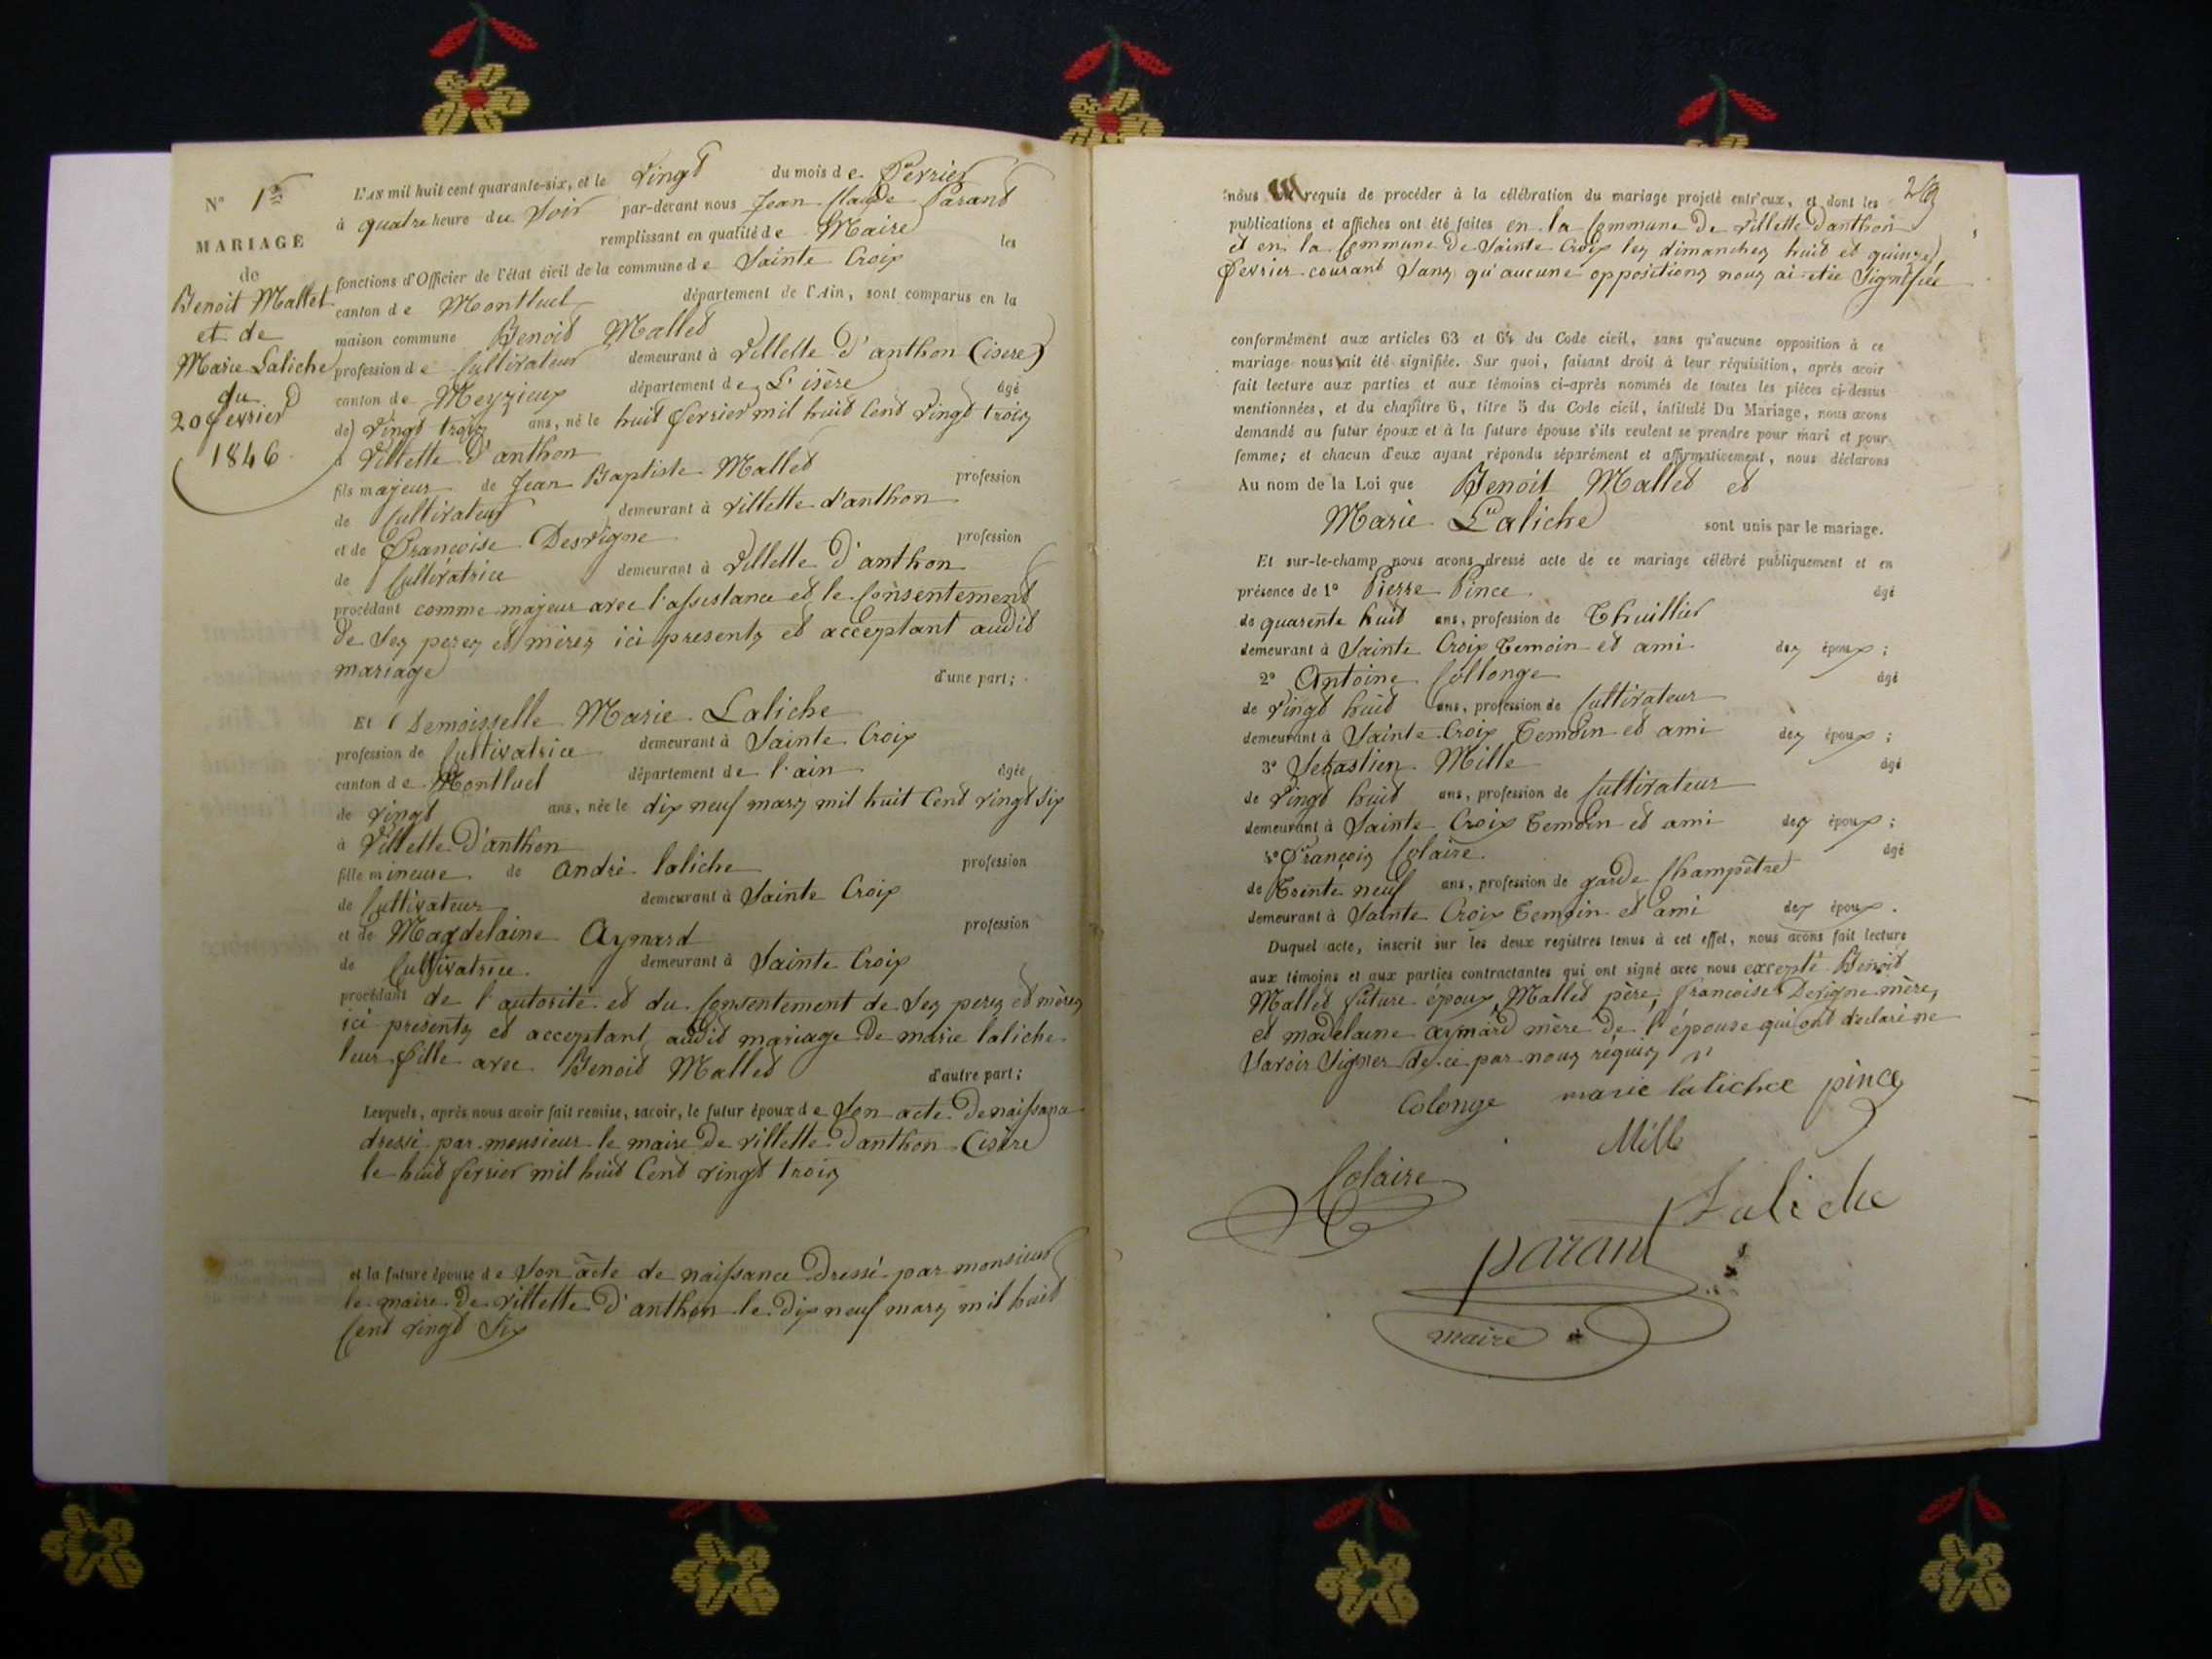 N° 1er
MARIAGE
de
Benoit Mallet
et de
Marie Laliche
du
20 fevrier
1846
L'AN mil huit cent quarante-six, et le vingt du mois de fevrier
à quatre heure du soir par-devant nous Jean Claude Parant
remplissant en qualité de Maire les
fonctions d'Officier de l'état civil de la commune de Sainte Croix
canton de Montluel département de l'Ain, sont comparus en la
maison commune Benoit Mallet
profession de Cultivateur demeurant à Villette d'anthon (isere)
canton de Meyzieux département de L'isère âgé
de vingt trois ans, né le huit fevrier mil huit Cent vingt trois
à Villette d'anthon
fils majeur de Jean Baptiste Mallet profession
de Cultivateur demeurant à villette d'anthon
et de Françoise Desvigne profession
de Cultivatrice demeurant à Villette d'anthon
procédant comme majeur avec l'assistance et le Consentement
de ses peres et mères ici presents et acceptant audit
mariage d'une part;
Et Demoisselle Marie Laliche
profession de Cultivatrice demeurant à Sainte Croix
canton de Montluel département de l'ain âgée
de vingt ans, née le dix neuf mars mil huit Cent vingt six
à Villette d'anthon
fille mineure de andré laliche profession
de Cultivateur demeurant à Sainte Croix
et de Magdelaine Aymard profession
de Cultivatrice demeurant à Sainte Croix
procédant de l'autorité et du Consentement de ses peres et mères
ici presents et acceptant audit mariage de marie laliche
leur fille avec Benoit Mallet d'autre part;
Lesquels, après nous avoir fait remise, savoir, le futur époux de son acte de naissance
dressé par monsieur le maire de villette d'anthon (isère)
le huit fevrier mil huit Cent vingt trois
et la future épouse de son acte de naissance dressé par monsieur
le maire de villette d'anthon le dix neuf mars mil huit
Cent vingt six
nous requis de procéder à la célébration du mariage projeté entr'eux, et dont les
publications et affiches ont été faites en la Commune de villette d'anthon
et en la Commune de Sainte Croix les dimanches huit et quinze
fevrier courant sans qu'aucune oppositions nous ai etée signifiée
conformément aux articles 63 et 64 du Code civil, sans qu'aucune opposition à ce
mariage nous ait été signifiée. Sur quoi, faisant droit à leur réquisition, après avoir
fait lecture aux parties et aux témoins ci-après nommés de toutes les pièces ci-dessus
mentionnées, et du chapitre 6, titre 5 du Code civil, intitulé Du Mariage, nous avons
demandé au futur époux et à la future épouse s'ils veulent se prendre pour mari et pour
femme; et chacun d'eux ayant répondu séparément et affirmativement, nous déclarons
Au nom de la Loi que Benoit Mallet et
Marie Laliche sont unis par le mariage.
Et sur-le-champ nous avons dressé acte de ce mariage célébré publiquement et en
présence de 1° Pierre Pince âgé
de quarente huit ans, profession de Thuillier
demeurant à Sainte Croix Temoin et ami des époux;
2° Antoine Collonge âgé
de vingt huit ans, profession de Cultivateur
demeurant à Sainte Croix Temoin et ami des époux;
3° Sebastien Mille âgé
de vingt huit ans, profession de Cultivateur
demeurant à Sainte Croix Temoin et ami des époux;
4° François Colaire âgé
de Trente neuf ans, profession de garde Champêtre
demeurant à Sainte Croix Temoin et ami des époux.
Duquel acte, inscrit sur les deux registres tenus à cet effet, nous avons fait lecture
aux témoins et aux parties contractantes qui ont signé avec nous excepté Benoit
Mallet future époux, Mallet père, francoise Devigne mère,
et madelaine aymard mère de l'épouse qui ont declaré ne
savoir signer de ce par nous réquis
Colonge marie lalichce pince
Mille
Colaire
Laliche
parant
maire